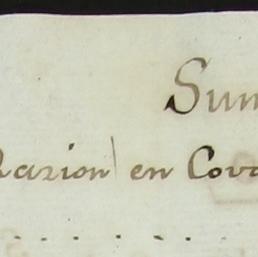 Sum
razion en Cova